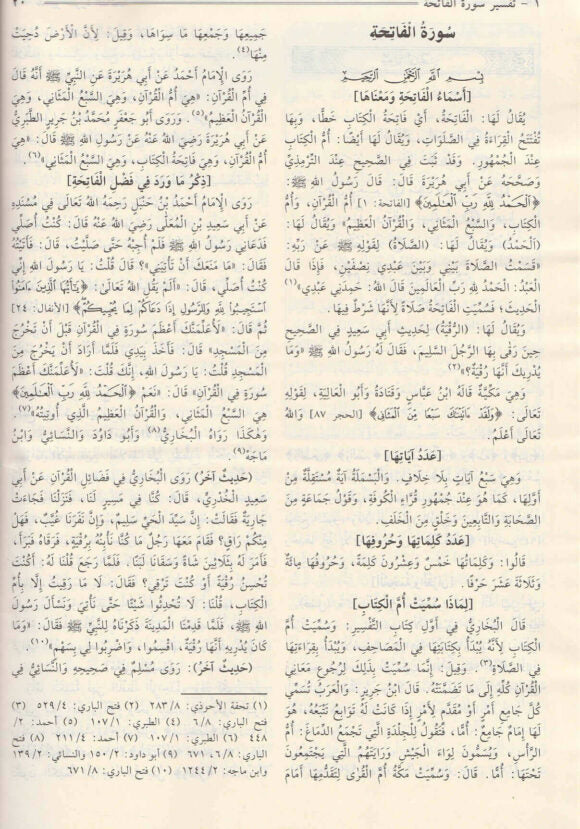 ١ - تفسير سورة الفاتحة
٢٠
سُورَةُ الْفَاتِحَةِ
بِسْمِ اللَّهِ الرَّحْمَنِ الرَّحِيمِ
[أَسْمَاءُ الْفَاتِحَةِ وَمَعْنَاهَا]
يُقَالُ لَهَا: الْفَاتِحَةُ، أَيْ فَاتِحَةُ الْكِتَابِ خَطًّا، وَبِهَا
تُفْتَتَحُ الْقِرَاءَةُ فِي الصَّلَوَاتِ، وَيُقَالُ لَهَا أَيْضًا: أُمُّ الْكِتَابِ
عِنْدَ الْجُمْهُورِ. وَقَدْ ثَبَتَ فِي الصَّحِيحِ عِنْدَ التِّرْمِذِيِّ
وَصَحَّحَهُ عَنْ أَبِي هُرَيْرَةَ قَالَ: قَالَ رَسُولُ اللهِ ﷺ:
﴿الْحَمْدُ لِلَّهِ رَبِّ الْعَالَمِينَ﴾ [الفاتحة: ١] أُمُّ الْقُرْآنِ، وَأُمُّ
الْكِتَابِ، وَالسَّبْعُ الْمَثَانِي، وَالْقُرْآنُ الْعَظِيمُ» وَيُقَالُ لَهَا:
(الْحَمْدُ) وَيُقَالُ لَهَا: (الصَّلَاةُ) لِقَوْلِهِ ﷺ عَنْ رَبِّهِ:
«قَسَمْتُ الصَّلَاةَ بَيْنِي وَبَيْنَ عَبْدِي نِصْفَيْنِ، فَإِذَا قَالَ
الْعَبْدُ: الْحَمْدُ لِلَّهِ رَبِّ الْعَالَمِينَ قَالَ اللهُ: حَمِدَنِي عَبْدِي»(١)
الْحَدِيثَ؛ فَسُمِّيَتِ الْفَاتِحَةُ صَلَاةً لِأَنَّهَا شَرْطٌ فِيهَا.
وَيُقَالُ لَهَا: (الرُّقْيَةُ) لِحَدِيثِ أَبِي سَعِيدٍ فِي الصَّحِيحِ
حِينَ رَقَى بِهَا الرَّجُلَ السَّلِيمَ، فَقَالَ لَهُ رَسُولُ اللهِ ﷺ «وَمَا
يُدْرِيكَ أَنَّهَا رُقْيَةٌ؟»(٢)
وَهِيَ مَكِّيَّةٌ قَالَهُ ابْنُ عَبَّاسٍ وَقَتَادَةُ وَأَبُو الْعَالِيَةِ، لِقَوْلِهِ
تَعَالَى: ﴿وَلَقَدْ ءَاتَيْنَاكَ سَبْعًا مِنَ الْمَثَانِي﴾ [الحجر ٨٧] وَاللهُ
تَعَالَى أَعْلَمُ.
[عَدَدُ آيَاتِهَا]
وَهِيَ سَبْعُ آيَاتٍ بِلَا خِلَافٍ. وَالْبَسْمَلَةُ آيَةٌ مُسْتَقِلَّةٌ مِنْ
أَوَّلِهَا، كَمَا هُوَ عِنْدَ جُمْهُورِ قُرَّاءِ الْكُوفَةِ، وَقَوْلُ جَمَاعَةٍ مِنَ
الصَّحَابَةِ وَالتَّابِعِينَ وَخَلْقٍ مِنَ الْخَلَفِ.
[عَدَدُ كَلِمَاتِهَا وَحُرُوفِهَا]
قَالُوا: وَكَلِمَاتُهَا خَمْسٌ وَعِشْرُونَ كَلِمَةً، وَحُرُوفُهَا مِائَةٌ
وَثَلَاثَةَ عَشَرَ حَرْفًا.
[لِمَاذَا سُمِّيَتْ أُمَّ الْكِتَابِ]
قَالَ الْبُخَارِيُّ فِي أَوَّلِ كِتَابِ التَّفْسِيرِ: وَسُمِّيَتْ أُمَّ
الْكِتَابِ لِأَنَّهُ يُبْدَأُ بِكِتَابَتِهَا فِي الْمَصَاحِفِ، وَيُبْدَأُ بِقِرَاءَتِهَا
فِي الصَّلَاةِ(٣). وَقِيلَ: إِنَّمَا سُمِّيَتْ بِذَلِكَ لِرُجُوعِ مَعَانِي
الْقُرْآنِ كُلِّهِ إِلَى مَا تَضَمَّنَتْهُ. قَالَ ابْنُ جَرِيرٍ: وَالْعَرَبُ تُسَمِّي
كُلَّ جَامِعِ أَمْرٍ أَوْ مُقَدَّمٍ لِأَمْرٍ إِذَا كَانَتْ لَهُ تَوَابِعُ تَتْبَعُهُ، هُوَ
لَهَا إِمَامٌ جَامِعٌ: أُمًّا، فَتَقُولُ لِلْجِلْدَةِ الَّتِي تَجْمَعُ الدِّمَاغَ: أُمُّ
الرَّأْسِ، وَيُسَمُّونَ لِوَاءَ الْجَيْشِ وَرَايَتَهُمُ الَّتِي يَجْتَمِعُونَ
تَحْتَهَا: أُمًّا. قَالَ: وَسُمِّيَتْ مَكَّةُ أُمَّ الْقُرَى لِتَقَدُّمِهَا أَمَامَ
جَمِيعِهَا وَجَمْعِهَا مَا سِوَاهَا، وَقِيلَ: لِأَنَّ الْأَرْضَ دُحِيَتْ
مِنْهَا(٤).
رَوَى الْإِمَامُ أَحْمَدُ عَنْ أَبِي هُرَيْرَةَ عَنِ النَّبِيِّ ﷺ أَنَّهُ قَالَ
فِي أُمِّ الْقُرْآنِ: «هِيَ أُمُّ الْقُرْآنِ، وَهِيَ السَّبْعُ الْمَثَانِي، وَهِيَ
الْقُرْآنُ الْعَظِيمُ»(٥). وَرَوَى أَبُو جَعْفَرٍ مُحَمَّدُ بْنُ جَرِيرٍ الطَّبَرِيُّ
عَنْ أَبِي هُرَيْرَةَ رَضِيَ اللهُ عَنْهُ عَنْ رَسُولِ اللهِ ﷺ قَالَ: «هِيَ
أُمُّ الْقُرْآنِ، وَهِيَ فَاتِحَةُ الْكِتَابِ، وَهِيَ السَّبْعُ الْمَثَانِي»(٦).
[ذِكْرُ مَا وَرَدَ فِي فَضْلِ الْفَاتِحَةِ]
رَوَى الْإِمَامُ أَحْمَدُ بْنُ حَنْبَلٍ رَحِمَهُ اللهُ تَعَالَى فِي مُسْنَدِهِ
عَنْ أَبِي سَعِيدِ بْنِ الْمُعَلَّى رَضِيَ اللهُ عَنْهُ قَالَ: كُنْتُ أُصَلِّي
فَدَعَانِي رَسُولُ اللهِ ﷺ فَلَمْ أُجِبْهُ حَتَّى صَلَّيْتُ، قَالَ: فَأَتَيْتُهُ
فَقَالَ: «مَا مَنَعَكَ أَنْ تَأْتِيَنِي»؟ قَالَ قُلْتُ: يَا رَسُولَ اللهِ إِنِّي
كُنْتُ أُصَلِّي، قَالَ: «أَلَمْ يَقُلِ اللهُ تَعَالَى: ﴿يَا أَيُّهَا الَّذِينَ ءَامَنُوا
اسْتَجِيبُوا لِلَّهِ وَلِلرَّسُولِ إِذَا دَعَاكُمْ لِمَا يُحْيِيكُمْ﴾ [الأنفال: ٢٤]
ثُمَّ قَالَ: «لَأُعَلِّمَنَّكَ أَعْظَمَ سُورَةٍ فِي الْقُرْآنِ قَبْلَ أَنْ تَخْرُجَ
مِنَ الْمَسْجِدِ» قَالَ: فَأَخَذَ بِيَدِي فَلَمَّا أَرَادَ أَنْ يَخْرُجَ مِنَ
الْمَسْجِدِ قُلْتُ: يَا رَسُولَ اللهِ، إِنَّكَ قُلْتَ: «لَأُعَلِّمَنَّكَ أَعْظَمَ
سُورَةٍ فِي الْقُرْآنِ» قَالَ: «نَعَمْ ﴿الْحَمْدُ لِلَّهِ رَبِّ الْعَالَمِينَ﴾
هِيَ السَّبْعُ الْمَثَانِي، وَالْقُرْآنُ الْعَظِيمُ الَّذِي أُوتِيتُهُ»(٧)
وَهَكَذَا رَوَاهُ الْبُخَارِيُّ(٨) وَأَبُو دَاوُدَ وَالنَّسَائِيُّ وَابْنُ
مَاجَهْ(٩).
(حَدِيثٌ آخَرُ) رَوَى الْبُخَارِيُّ فِي فَضَائِلِ الْقُرْآنِ عَنْ أَبِي
سَعِيدٍ الْخُدْرِيِّ، قَالَ: كُنَّا فِي مَسِيرٍ لَنَا، فَنَزَلْنَا فَجَاءَتْ
جَارِيَةٌ فَقَالَتْ: إِنَّ سَيِّدَ الْحَيِّ سَلِيمٌ، وَإِنَّ نَفَرَنَا غُيَّبٌ، فَهَلْ
مِنْكُمْ رَاقٍ؟ فَقَامَ مَعَهَا رَجُلٌ مَا كُنَّا نَأْبِنُهُ بِرُقْيَةٍ، فَرَقَاهُ فَبَرَأَ،
فَأَمَرَ لَهُ بِثَلَاثِينَ شَاةً وَسَقَانَا لَبَنًا. فَلَمَّا رَجَعَ قُلْنَا لَهُ: أَكُنْتَ
تُحْسِنُ رُقْيَةً أَوْ كُنْتَ تَرْقِي؟ فَقَالَ: لَا مَا رَقَيْتُ إِلَّا بِأُمِّ
الْكِتَابِ، قُلْنَا: لَا تُحْدِثُوا شَيْئًا حَتَّى نَأْتِيَ وَنَسْأَلَ رَسُولَ
اللهِ ﷺ، فَلَمَّا قَدِمْنَا الْمَدِينَةَ ذَكَرْنَاهُ لِلنَّبِيِّ ﷺ فَقَالَ: «وَمَا
كَانَ يُدْرِيهِ أَنَّهَا رُقْيَةٌ، اقْسِمُوا، وَاضْرِبُوا لِي بِسَهْمٍ»(١٠).
(حَدِيثٌ آخَرُ): رَوَى مُسْلِمٌ فِي صَحِيحِهِ وَالنَّسَائِيُّ فِي
(١) تحفة الأحوذي: ٢٨٣/٨ (٢) فتح الباري: ٥٢٩/٤ (٣)
فتح الباري: ٦/٨ (٤) الطبري: ١٠٧/١ (٥) أحمد: ٢/
٤٤٨ (٦) الطبري: ١٠٧/١ (٧) أحمد: ٢١١/٤ (٨) فتح
الباري: ٦/٨، ٦٧١ (٩) أبو داود: ١٥٠/٢ والنسائي: ١٣٩/٢
وابن ماجه: ١٢٤٤/٢ (١٠) فتح الباري: ٦٧١/٨